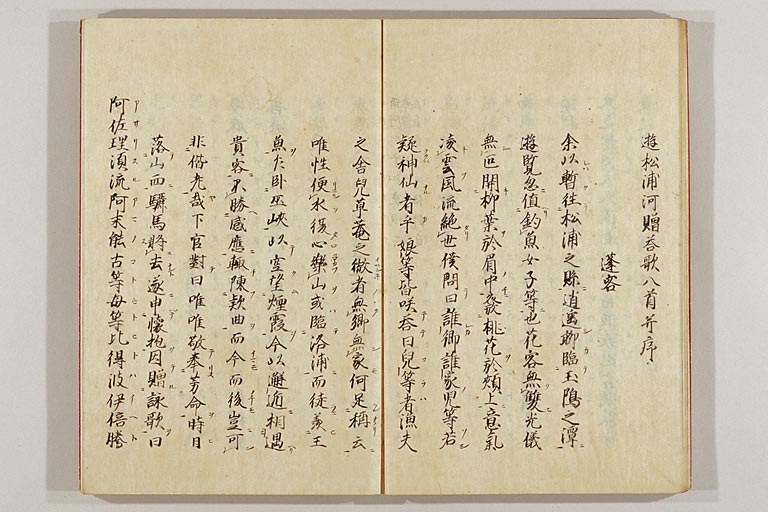 遊松浦河贈答歌八首并序
蓬客
余以暫徃松浦之縣逍遥聊臨玉嶋之潭
遊覧忽值釣魚女子等也花容無雙光儀
無匹開柳葉於眉中發桃花於頬上意氣
凌雲風流絶世僕問曰誰鄕誰家児等若
疑神仙者乎娘等皆咲荅曰兒等者漁夫
之舎兒草菴之微者無鄕無家何足稱云
唯性便水復心樂山或臨洛浦而徒羡王
魚乍卧巫峽以空望煙霞今以邂逅相遇
貴客不勝感應輙陳欵曲而今而後豈可
非偕老哉下官對曰唯唯敬奉芳命時日
落山西驪馬將去遂申懐抱因贈詠歌曰
阿佐理須流阿末能古等母等比得波伊倍騰